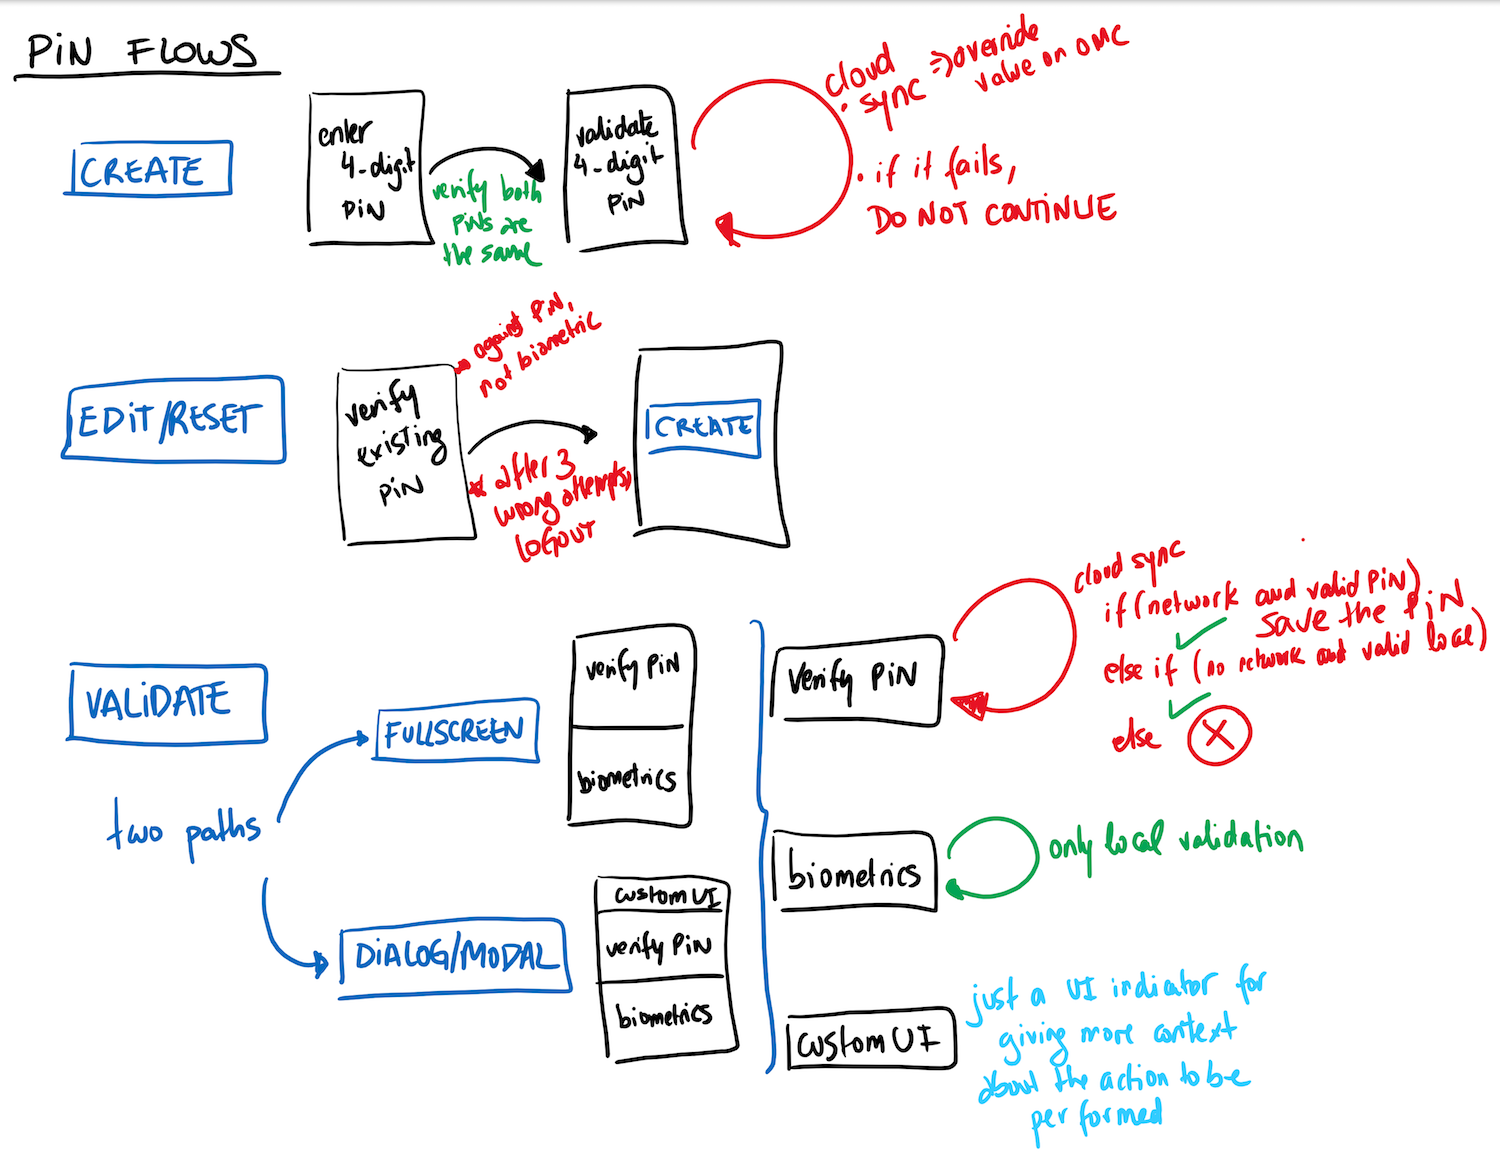 PiN FLOWS
CREATE
enter
4-digit
PiN
verify both
PiNs are
the same
validate
4-digit
PiN
cloud
• sync => override
value on OMC
• if it fails,
DO NOT CONTINUE
EDiT/RESET
verify
existing
PiN
against PiN,
not biometric
after 3
wrong attempts,
LOGOUT
CREATE
VALiDATE
two paths
FULLSCREEN
verify PiN
biometrics
DiALOG/MODAL
custom UI
verify PiN
biometrics
verify PiN
cloud sync
if (network and valid PiN)
save the PiN
else if (no network and valid local)
else X
biometrics
only local validation
custom UI
just a UI indicator for
giving more context
about the action to be
performed